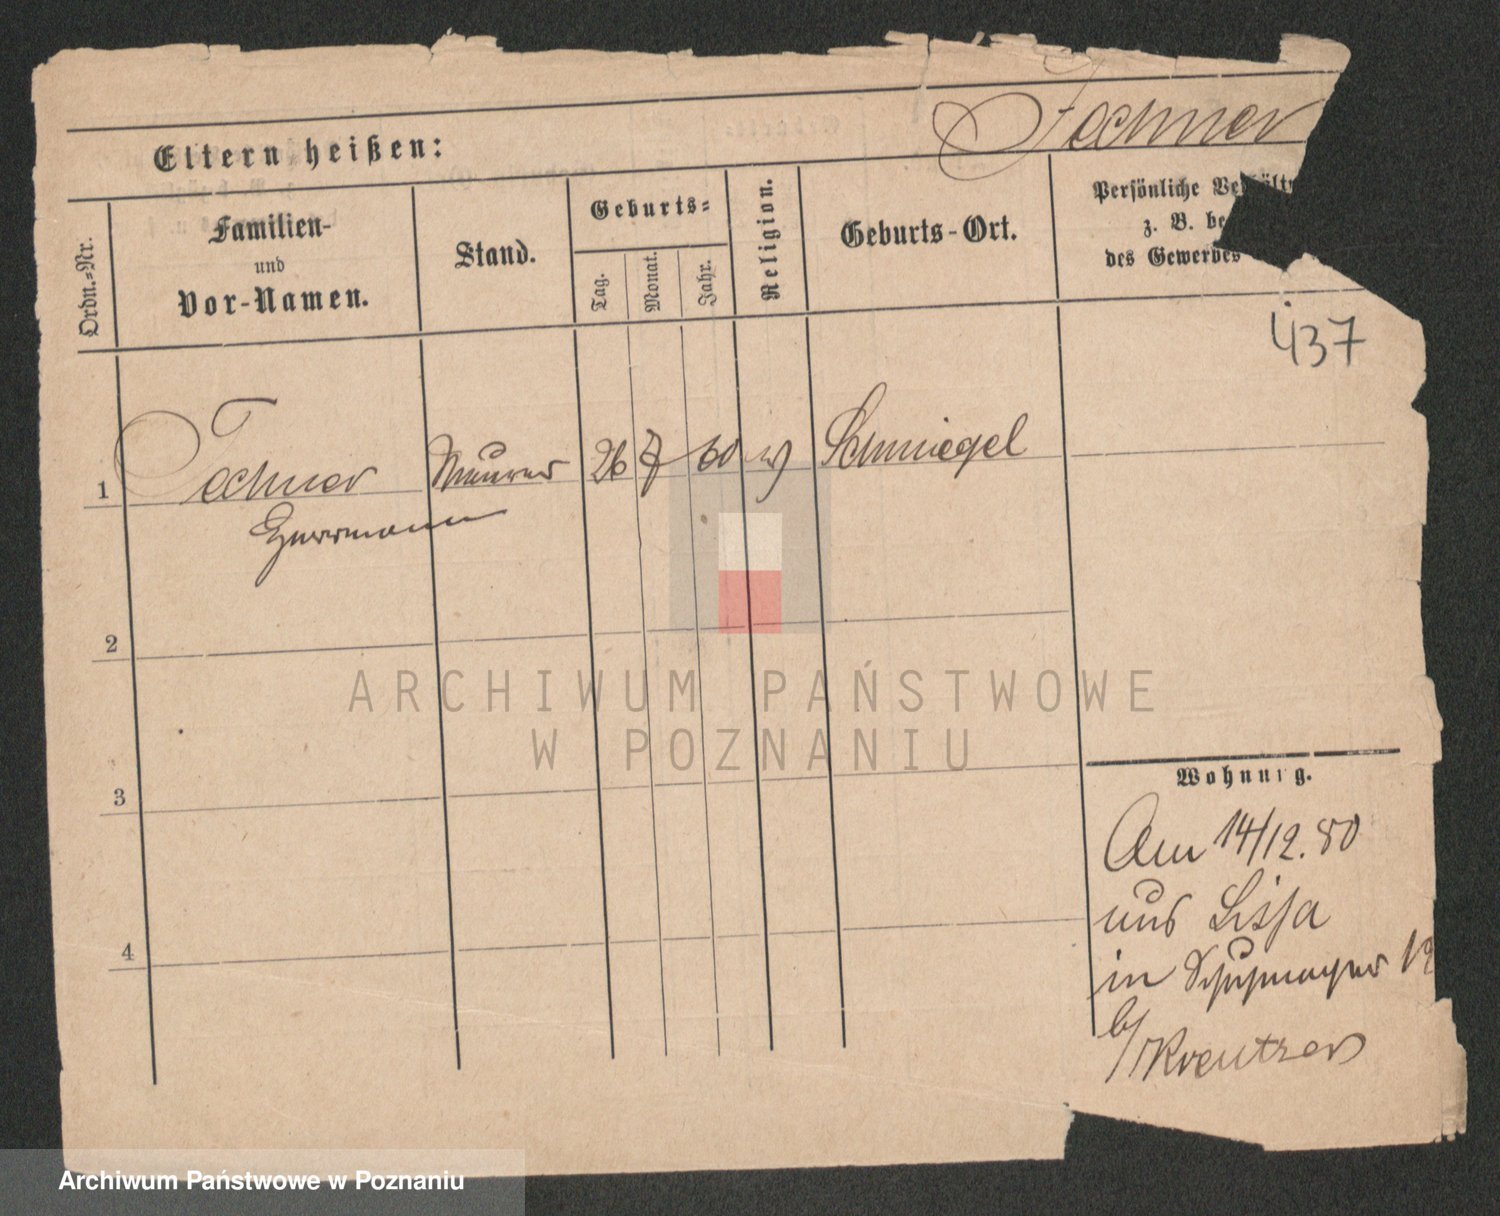 Eltern heißen:
Fechner
Ordn.-Nr.
Familien-
und
Vor-Namen.
Stand.
Geburts-
Tag.
Monat.
Jahr.
Religion.
Geburts-Ort.
Persönliche
z. B. be
des Gewerbes
437
1 Fechner Maurer 26 7 60 Schmiegel
Herrmann
2
3
4
Wohnung.
Am 14/12. 80
aus Lissa
in 19
b/Kreutzer
ARCHIWUM PAŃSTWOWE
W POZNANIU
Archiwum Państwowe w Poznaniu